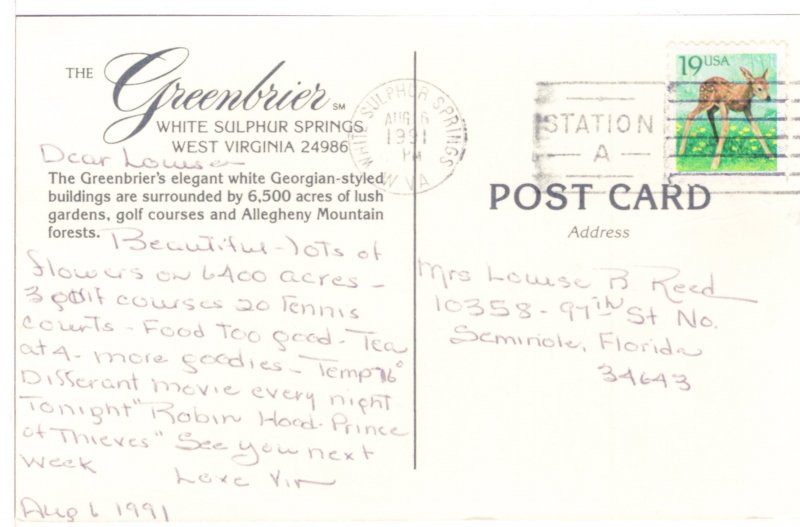 THE Greenbrier SM
WHITE SULPHUR SPRINGS
WEST VIRGINIA 24986
Dear Louise
The Greenbrier's elegant white Georgian-styled
buildings are surrounded by 6,500 acres of lush
gardens, golf courses and Allegheny Mountain
forests.
Beautiful - lots of
flowers on 6400 acres -
3 golf courses 20 Tennis
courts - Food Too good - Tea
at 4 - more goodies - Temp 76°
Differant movie every night
Tonight "Robin Hood - Prince
of Thieves" See you next
week
Love Vir
Aug 6 1991
WHITE SULPHUR SPRINGS
AUG 6
1991
PM
W VA
STATION
A
19 USA
POST CARD
Address
Mrs Louise B Reed
10358 - 97TH St No.
Seminole, Florida
34643